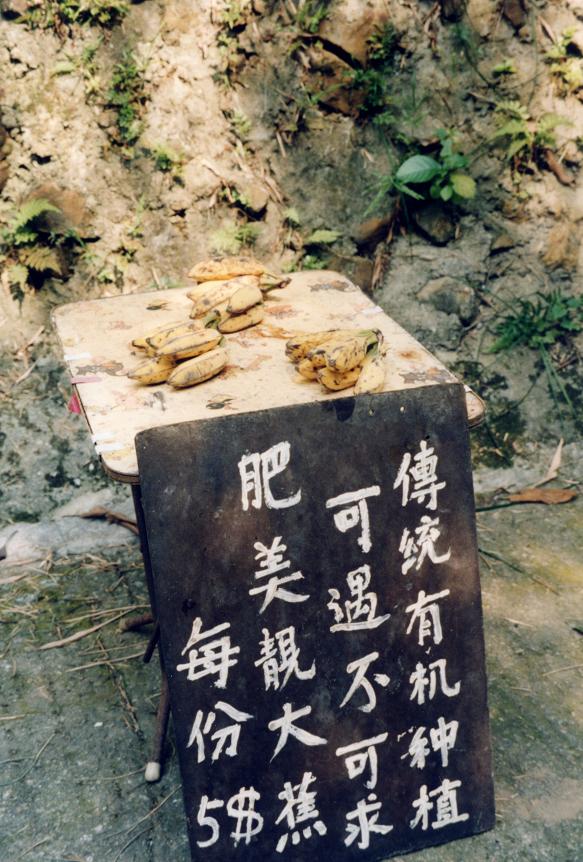 傳統有机种植
可遇不可求
肥美靚大蕉
每份5$